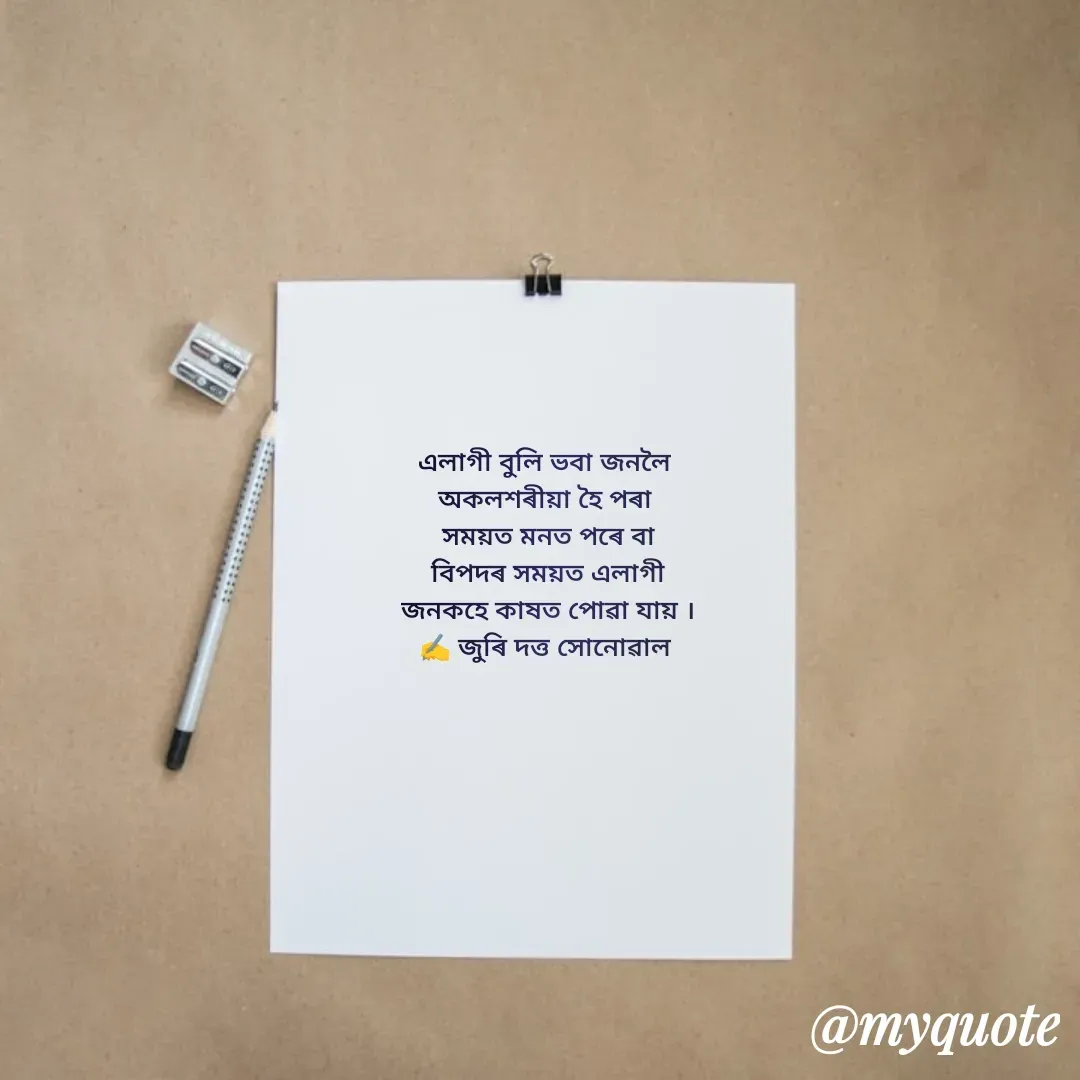 এলাগী বুলি ভবা জনলৈ
অকলশৰীয়া হৈ পৰা
সময়ত মনত পৰে বা
বিপদৰ সময়ত এলাগী
জনকহে কাষত পোৱা যায় ।
✍️ জুৰি দত্ত সোনোৱাল
@myquote